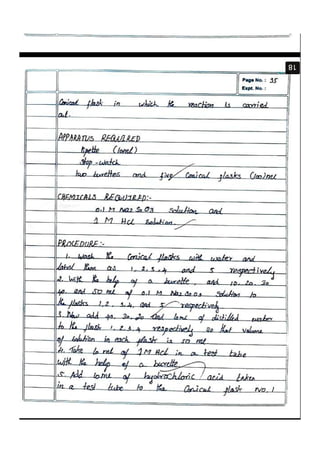 18
Page No. : 35
Expt. No. :
Conical flask in which the reaction is carried
out.
APPARATUS REQUIRED
Pipette (10ml)
Stop-watch
two burettes and five Conical flasks (100ml)
CHEMICALS REQUIRED:-
0.1 M Na2S2O3 solution and
1 M Hcl Solution.
PROCEDURE:-
1. Wash the Conical flasks with water and
label them as 1, 2, 3, 4 and 5 respectively
2. With the help of a burette, add 10, 20, 30
40, and 50 ml of 0.1 M Na2S2O3 Solution to
the flasks 1, 2, 3, 4, and 5 respectively
3. Now add 40, 30, 20 and 10ml of distilled water
to the flask 1, 2, 3, 4 respectively so that volume
of solution in each flask is 50 ml
4. Take 10 ml of 1M Hcl in a test tube
with the help of a burette
5. Add 10ml of hydrochloric acid taken
in a test tube to the Conical flask No. 1